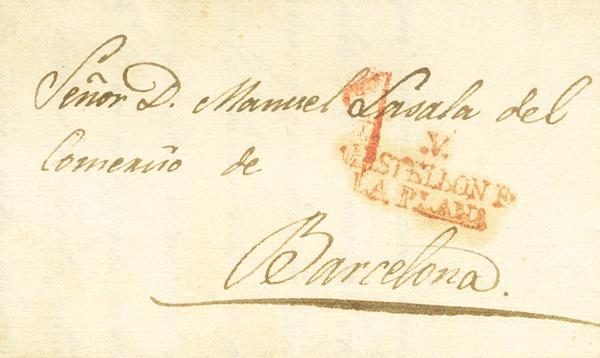 Señor D. Manuel Lasala del
Comercio de
Barcelona.
V.
CASTELLON P
LA PLANA